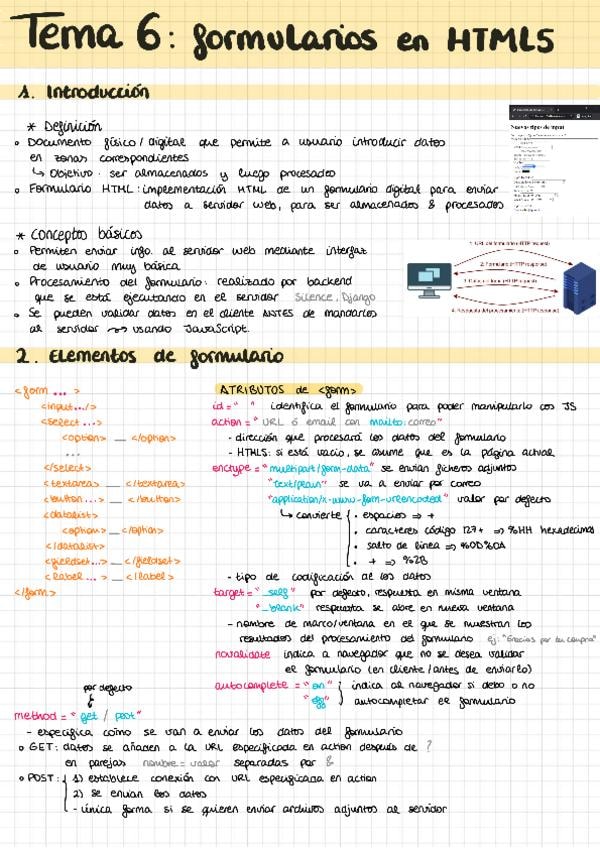 Tema 6: formularios en HTML5
1. Introducción
* Definición
Documento físico / digital que permite a usuario introducir datos
en zonas correspondientes
↳ Objetivo: ser almacenados y luego procesados
Formulario HTML: implementación HTML de un formulario digital para enviar
datos a servidor web, para ser almacenados & procesados
Nuevos tipos de input
* Conceptos básicos
Permiten enviar info. al servidor web mediante interfaz
de usuario muy básica
Procesamiento del formulario: realizado por backend
que se está ejecutando en el servidor Silence, Django
Se pueden validar datos en el cliente ANTES de mandarlos
al servidor ~> usando JavaScript.
1. URL del formulario (HTTP request)
2. Formulario (HTTP response)
4. Respuesta del procesamiento (HTTP response)
2. Elementos de formulario
<form ... >
<input.../>
<select ...>
<option> __ </option>
...
</select>
<textarea> __ </textarea>
<button...> __ </button>
<datalist>
<option> __ </option>
</datalist>
<fieldset...> __ </fieldset>
<label ... > __ </label >
</form>
ATRIBUTOS de <form>
id = " " identifica el formulario para poder manipularlo con JS
action = " URL ó email con mailto:correo"
- dirección que procesará los datos del formulario
- HTML5: si está vacío, se asume que es la página actual
enctype = "multipart/form-data" se envían ficheros adjuntos
"text/plain" se va a enviar por correo
"application/x-www-form-urlencoded" valor por defecto
↳ convierte { · espacios => +
· caracteres código 127+ => %HH hexadecimal
· salto de línea => %0D%0A
· + => %2B
- tipo de codificación de los datos
target = "_self" por defecto, respuesta en misma ventana
"_blank" respuesta se abre en nueva ventana
- nombre de marco/ventana en el que se muestran los
resultados del procesamiento del formulario ej: "Gracias por tu compra"
novalidate indica a navegador que no se desea validar
el formulario (en cliente/antes de enviarlo)
autocomplete = "on" } indica al navegador si debe o no
"off" } autocompletar el formulario
por defecto
method = " get / post"
- especifica cómo se van a enviar los datos del formulario
GET: datos se añaden a la URL especificada en action después de ?
en parejas nombre=valor separadas por &
POST: { 1) establece conexión con URL especificada en action
2) se envían los datos
- única forma si se quieren enviar archivos adjuntos al servidor